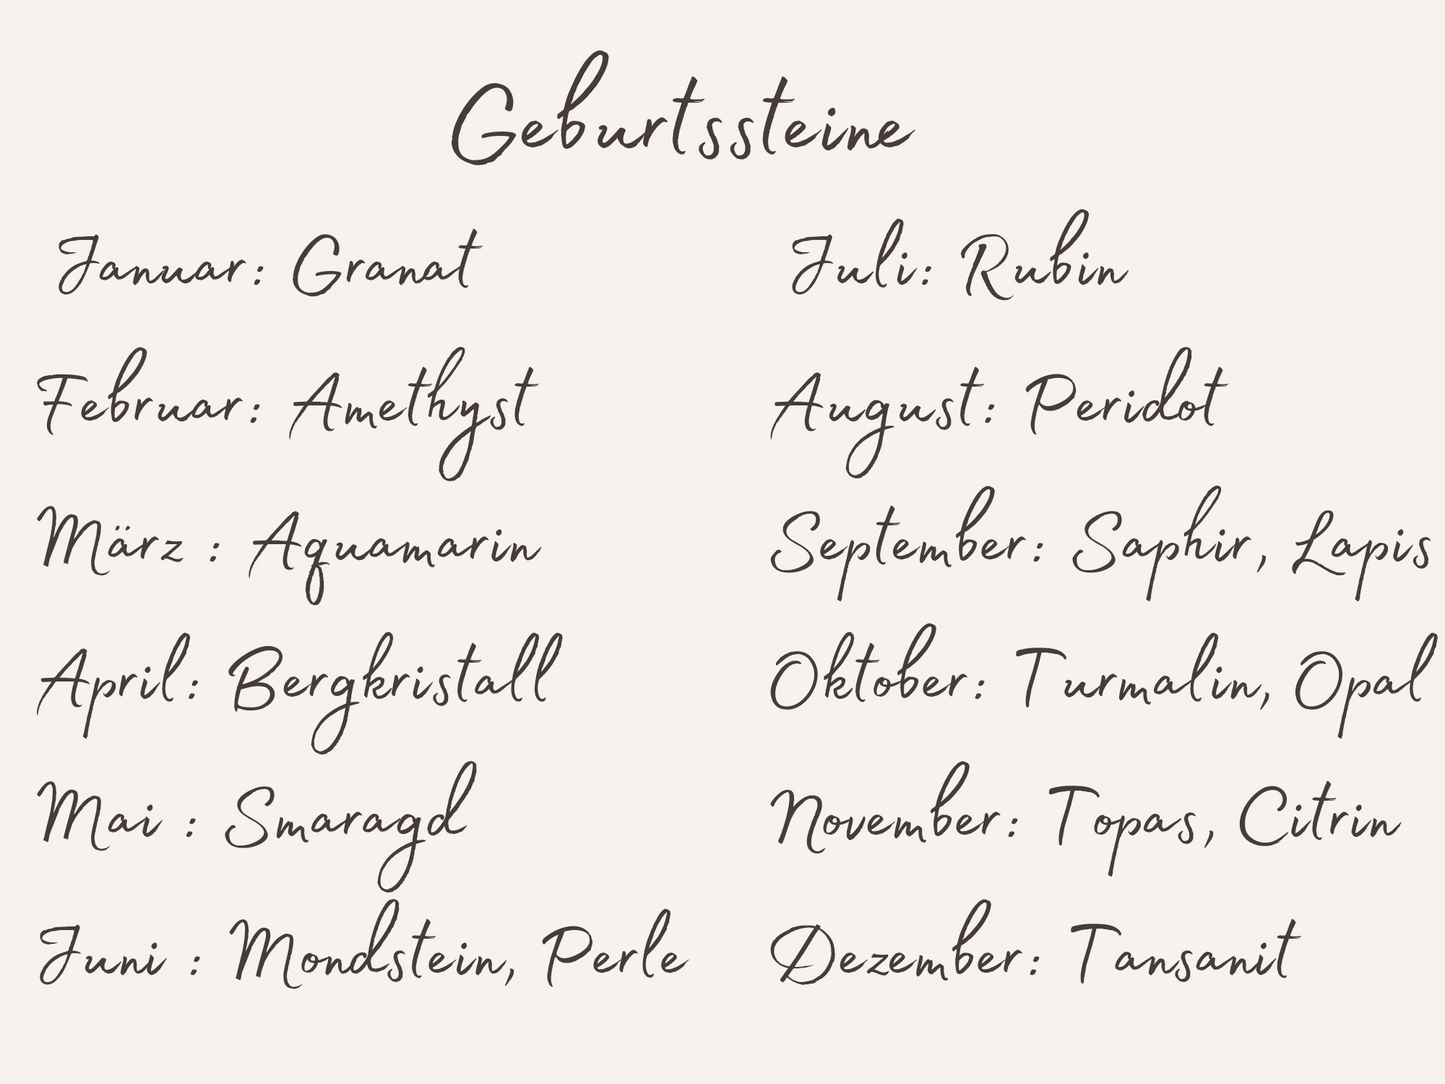 Geburtssteine
Januar: Granat
Februar: Amethyst
März : Aquamarin
April: Bergkristall
Mai : Smaragd
Juni : Mondstein, Perle
Juli: Rubin
August: Peridot
September: Saphir, Lapis
Oktober: Turmalin, Opal
November: Topas, Citrin
Dezember: Tansanit